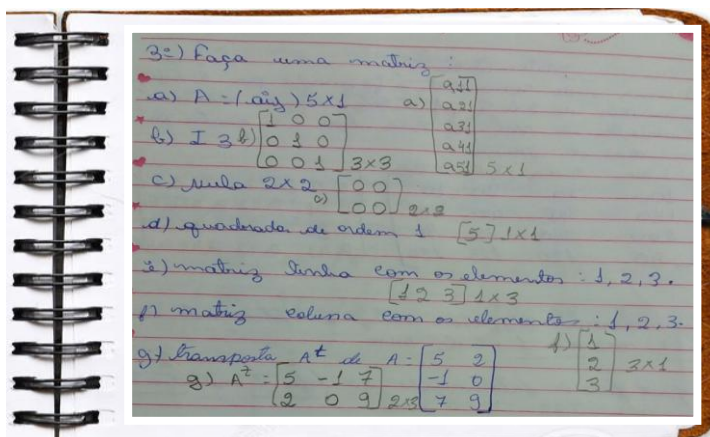 3º) Faça uma matriz :
a) A = (aij) 5x1
a) [a11
a21
a31
a41
a51] 5x1
b) I 3 b) [1 0 0
0 1 0
0 0 1] 3x3
c) nula 2x2 c) [0 0
0 0] 2x2
d) quadrada de ordem 1 [5] 1x1
e) matriz linha com os elementos : 1, 2, 3.
[1 2 3] 1x3
f) matriz coluna com os elementos : 1, 2, 3.
f) [1
2
3] 3x1
g) transposta At de A = [5 2
-1 0
7 9]
g) At = [5 -1 7
2 0 9] 2x3